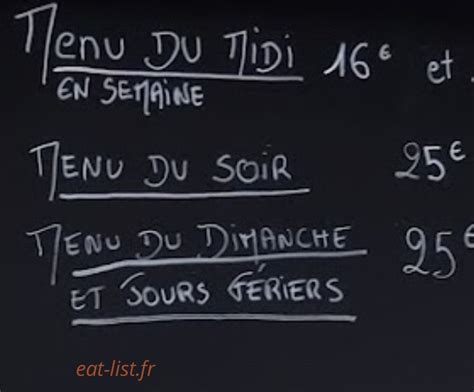 Menu DU MiDi 16€ et
EN SEMAiNE
MENU DU SOiR 25€
MENU DU DiMANCHE 25€
ET JOURS FÉRIERS
eat-list.fr